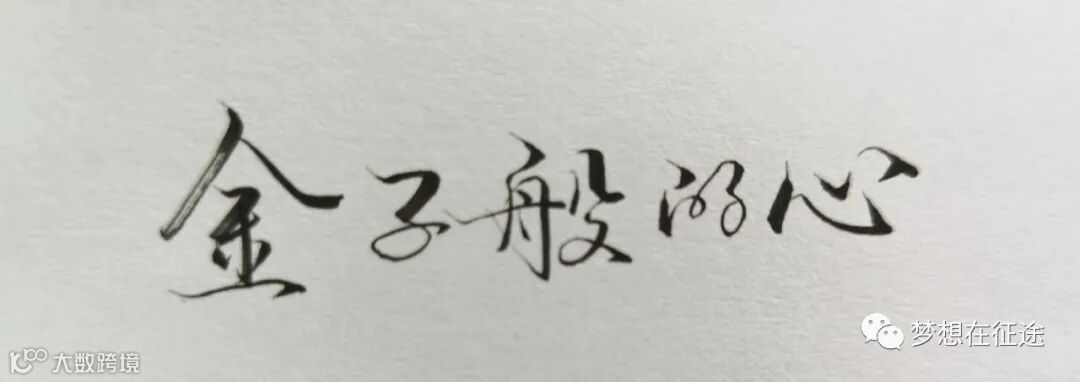 金子般的心
梦想在征途
大数跨境